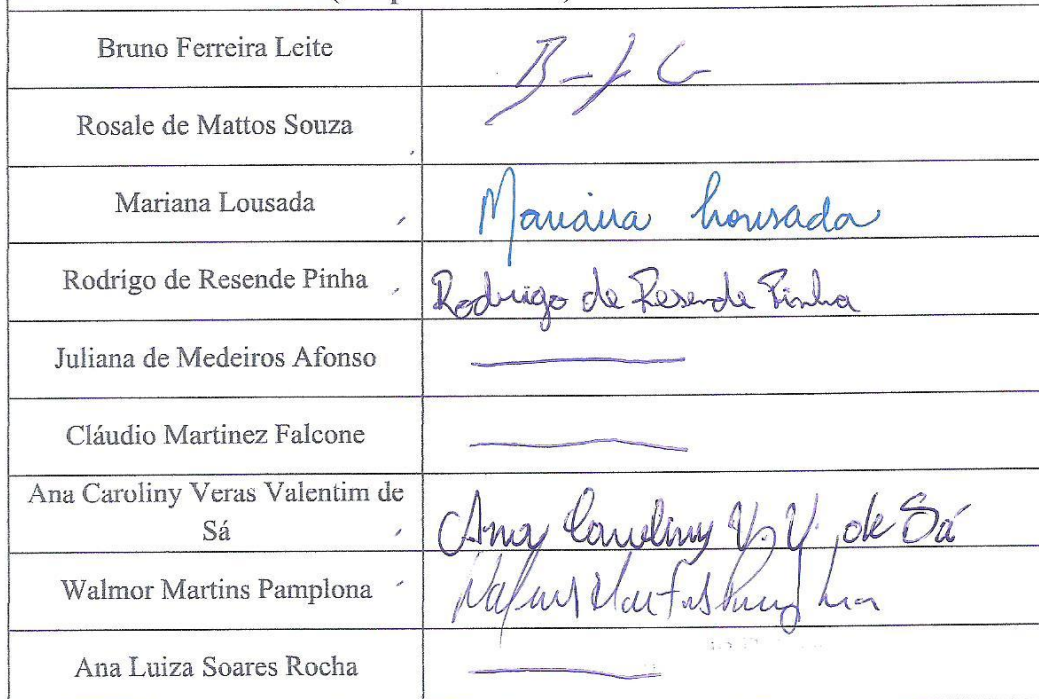 Bruno Ferreira Leite
Rosale de Mattos Souza
Mariana Lousada Mariana Lousada
Rodrigo de Resende Pinha Rodrigo de Resende Pinha
Juliana de Medeiros Afonso
Cláudio Martinez Falcone
Ana Caroliny Veras Valentim de
Sá Ana Caroliny V. V. de Sá
Walmor Martins Pamplona
Ana Luiza Soares Rocha